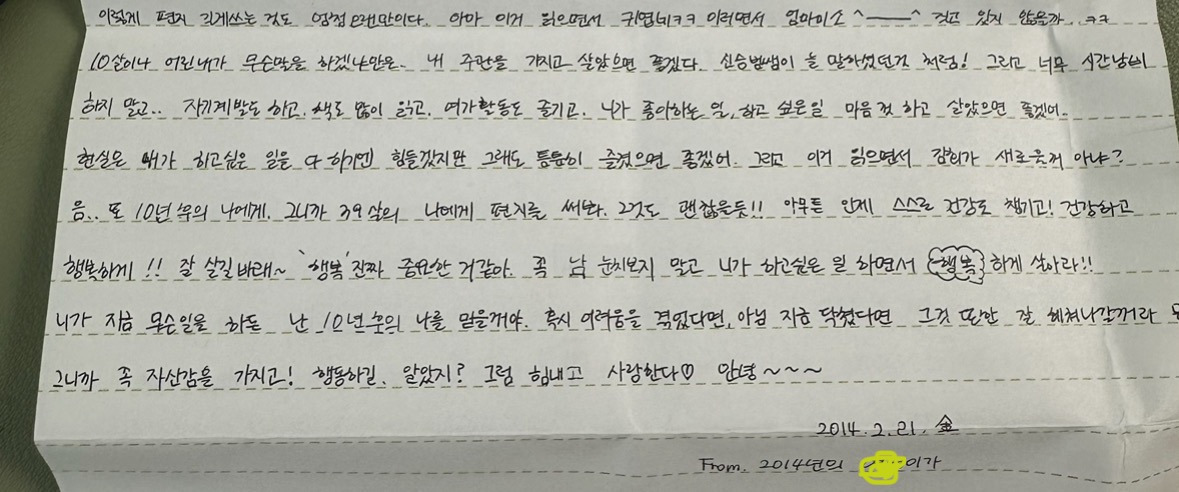 이렇게 편지 길게쓰는 것도 엄청 오랜만이다. 아마 이거 읽으면서 귀엽네ㅋㅋ 이러면서 엄마미소 ^――^ 짓고 있지 않을까.ㅋㅋ
10살이나 어린내가 무슨말을 하겠냐만은. 내 주관을 가지고 살았으면 좋겠다. 신승범쌤이 늘 말하셨던것 처럼! 그리고 너무 시간낭비
하지 말고.. 자기계발도 하고. 책도 많이 읽고. 여가활동도 즐기고. 니가 좋아하는 일, 하고 싶은일 마음껏 하고 살았으면 좋겠어.
현실은 내가 하고싶은 일을 다 하기엔 힘들겠지만 그래도 틈틈히 즐겼으면 좋겠어. 그리고 이거 읽으면서 감회가 새로웃꺼 아냐?
음.. 또 10년 후의 나에게. 그니까 39살의 나에게 편지를 써봐. 그것도 괜찮을듯!! 아무튼 언제 스스로 건강도 챙기고! 건강하고
행복하게!! 잘 살길바래~ '행복' 진짜 중요한 거같아. 꼭 남 눈치보지 말고 니가 하고싶은 일 하면서 행복하게 살아라!!
니가 지금 무슨일을 하든 난 10년 후의 나를 믿을꺼야. 혹시 어려움을 겪었다면, 아님 지금 닥쳤다면 그것 또한 잘 헤쳐나갈꺼라
그니까 꼭 자신감을 가지고! 행동하길. 알았지? 그럼 힘내고 사랑한다♡ 안녕~~~
2014.2.21.金
From. 2014년의 이가